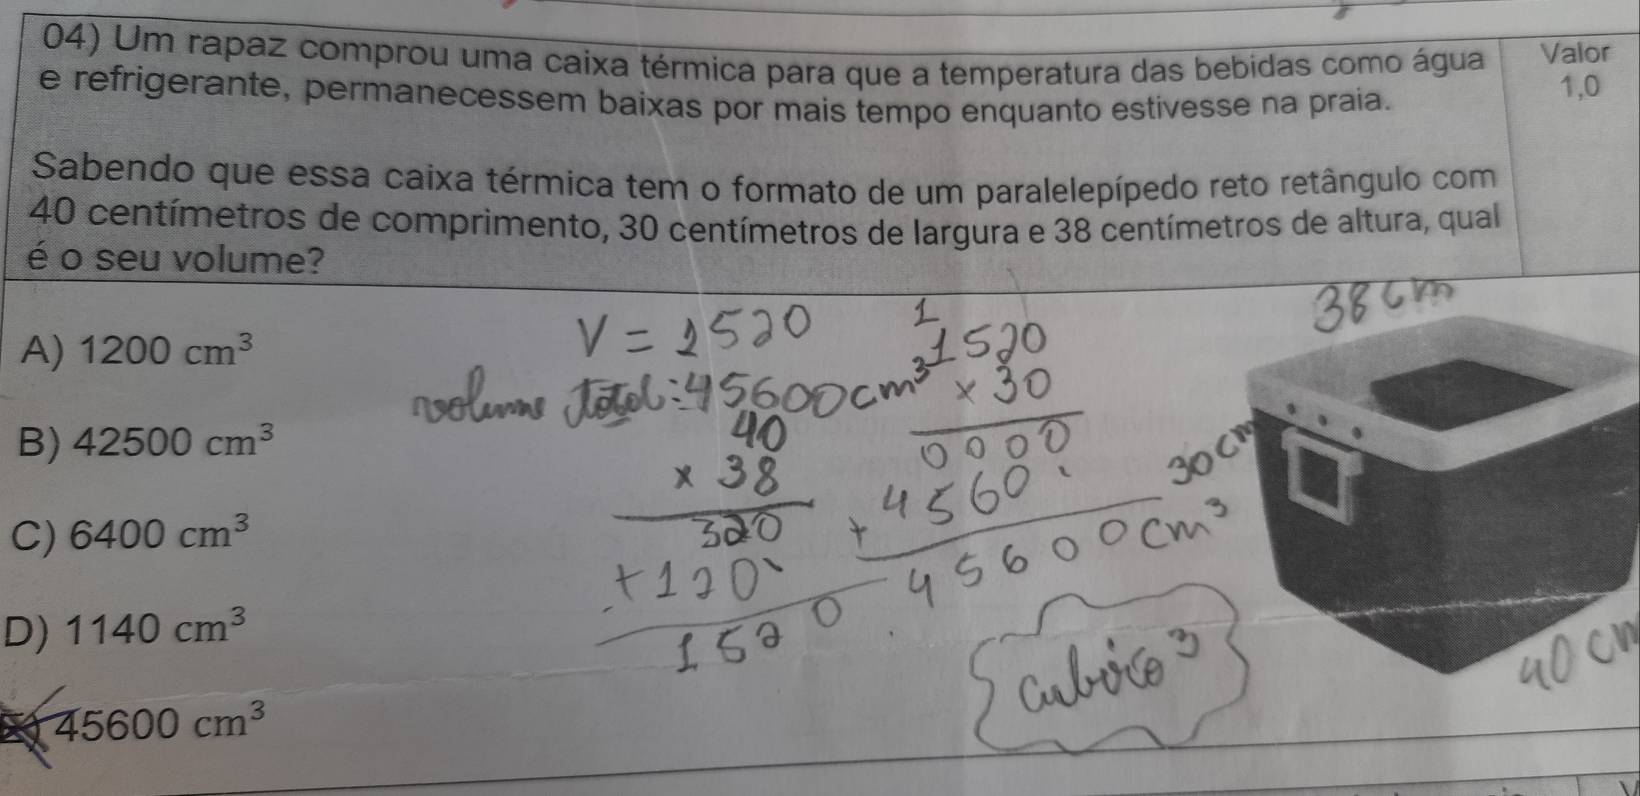 04) Um rapaz comprou uma caixa térmica para que a temperatura das bebidas como água
e refrigerante, permanecessem baixas por mais tempo enquanto estivesse na praia.
Valor
1,0
Sabendo que essa caixa térmica tem o formato de um paralelepípedo reto retângulo com
40 centímetros de comprimento, 30 centímetros de largura e 38 centímetros de altura, qual
é o seu volume?
A) 1200 cm³
B) 42500 cm³
C) 6400 cm³
D) 1140 cm³
E) 45600 cm³
V = 1520
volume total: 45600cm³
40
x 38
320
+120
1520
1
1520
x 30
0000
+ 4560
45600cm³
cubico³
38cm
30cm
40 cm